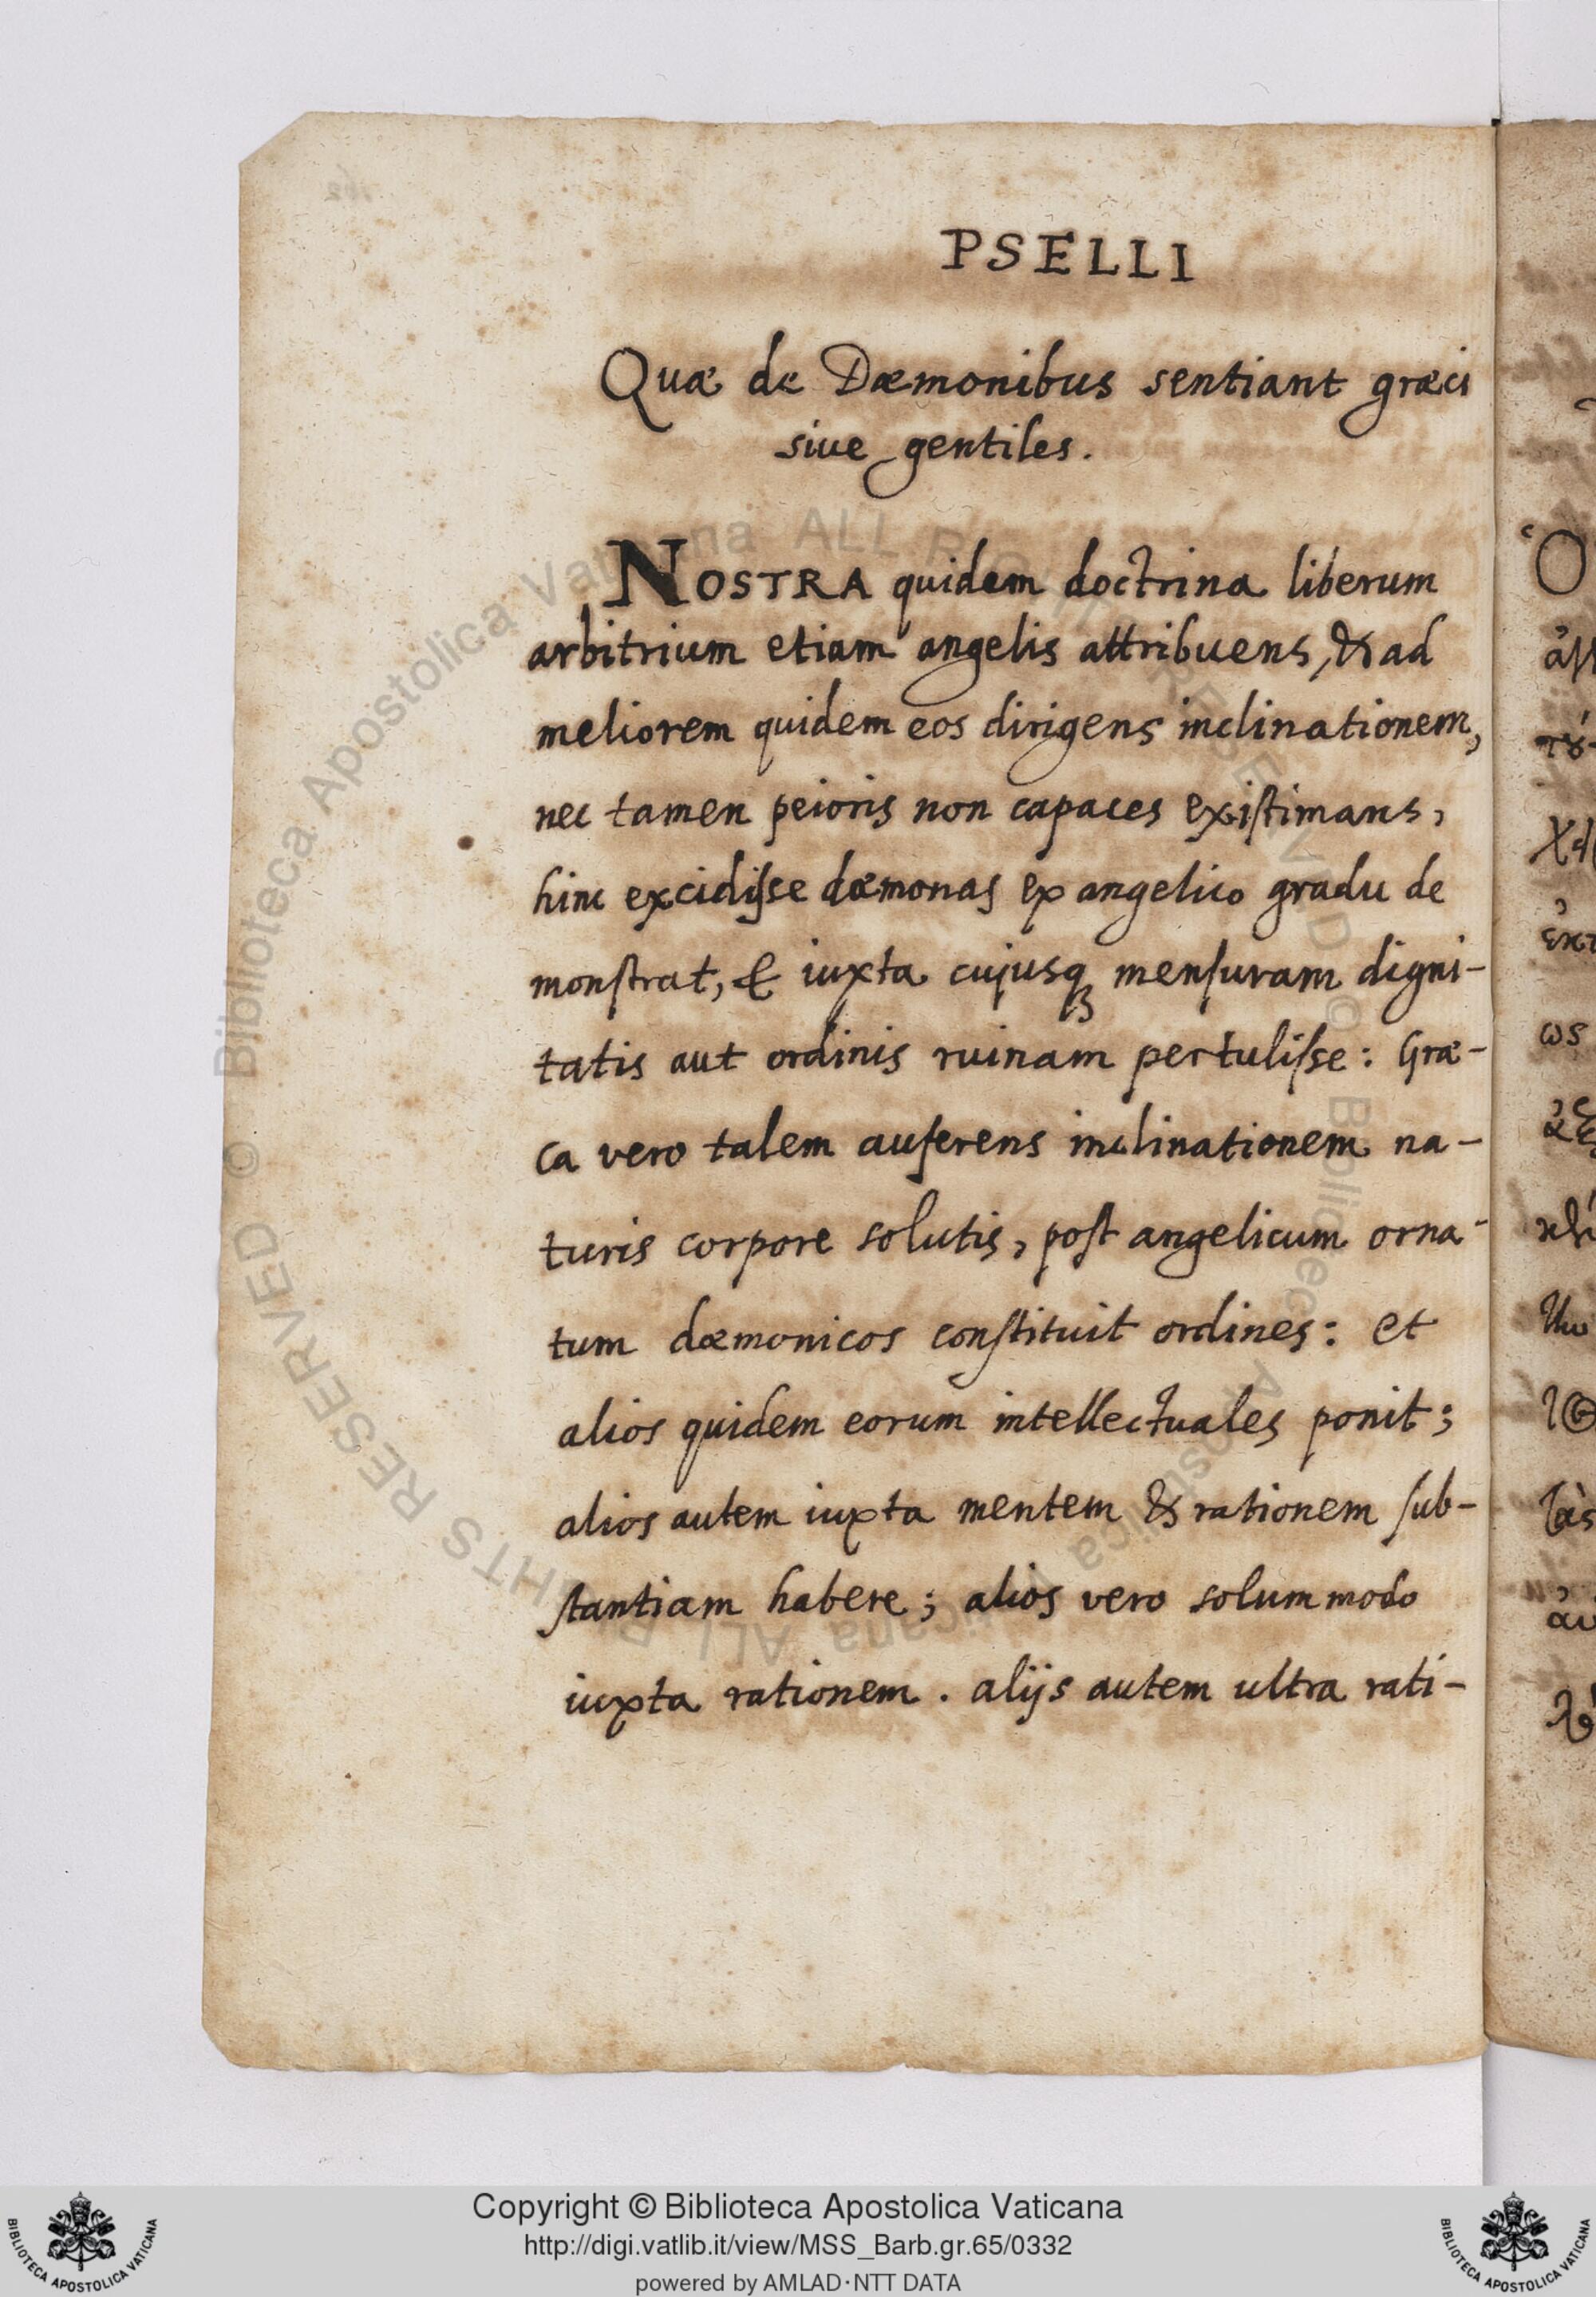 PSELLI
Quæ de Dæmonibus sentiant græci
siue gentiles.
NOSTRA quidem doctrina liberum
arbitrium etiam angelis attribuens, & ad
meliorem quidem eos dirigens inclinationem,
nec tamen peioris non capaces exiſtimans,
hinc excidiſse dæmonas ex angelico gradu de
monſtrat, & iuxta cujusqꝫ menſuram digni-
tatis aut ordinis ruinam pertuliſse: Græ-
ca vero talem auferens inclinationem na-
turis corpore solutis, poſt angelicum orna-
tum dæmonicos conſtituit ordines: et
alios quidem eorum intellectuales ponit;
alios autem iuxta mentem & rationem ſub-
ſtantiam habere; alios vero solummodo
iuxta rationem. alijs autem ultra rati-
Copyright © Biblioteca Apostolica Vaticana
http://digi.vatlib.it/view/MSS_Barb.gr.65/0332
powered by AMLAD·NTT DATA
BIBLIOTECA APOSTOLICA VATICANA
BIBLIOTECA APOSTOLICA VATICANA